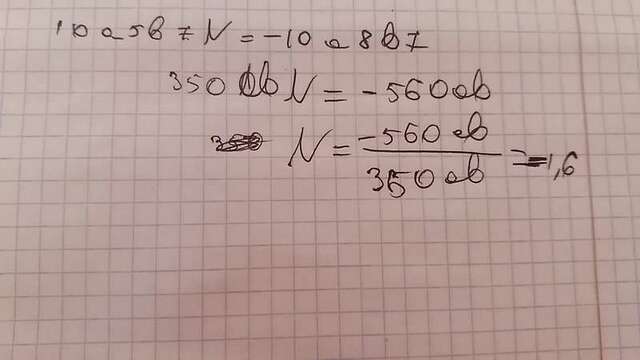 10a5b7N=-10a8b7
350abN=-560ab
N=-560ab/350ab=1,6